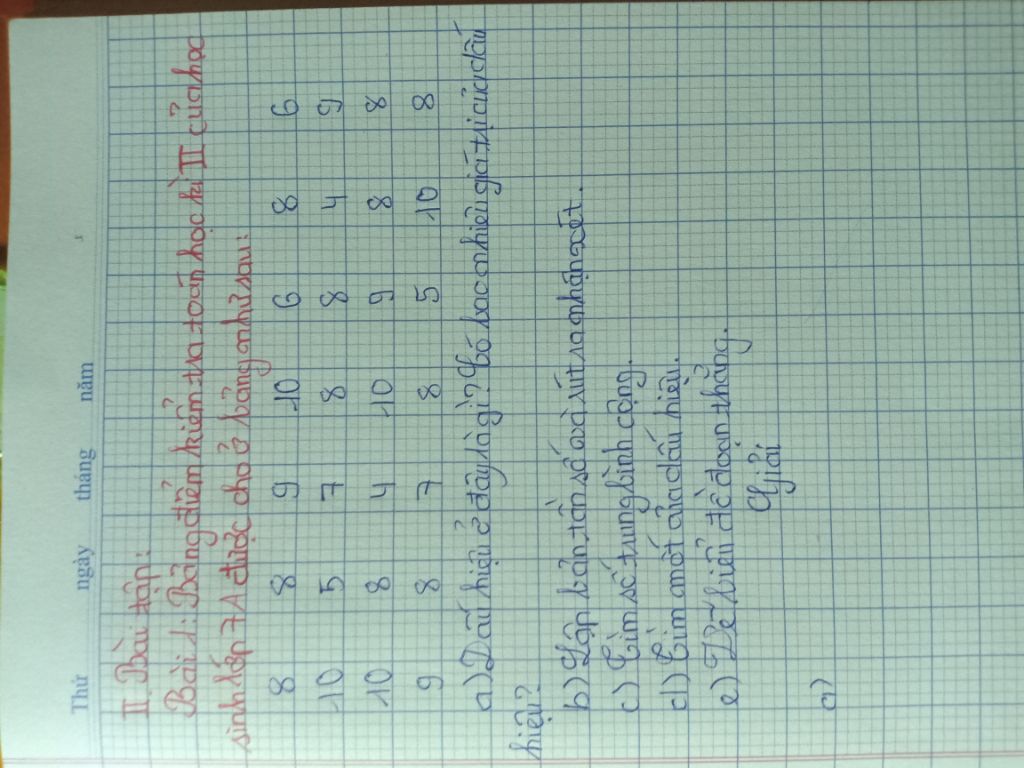 Thứ ngày tháng năm
II. Bài tập:
Bài 1: Bảng điểm kiểm tra toán học kì II của học
sinh lớp 7A được cho ở bảng như sau:
8 8 9 10 6 8 6
10 5 7 8 8 4 9
10 8 4 10 9 8 8
9 8 7 8 5 10 8
a) Dấu hiệu ở đây là gì? Có bao nhiêu giá trị của dấu
hiệu?
b) Lập bản tần số và rút ra nhận xét.
c) Tìm số trung bình cộng.
d) Tìm mốt của dấu hiệu.
e) Vẽ biểu đồ đoạn thẳng.
Giải
a)